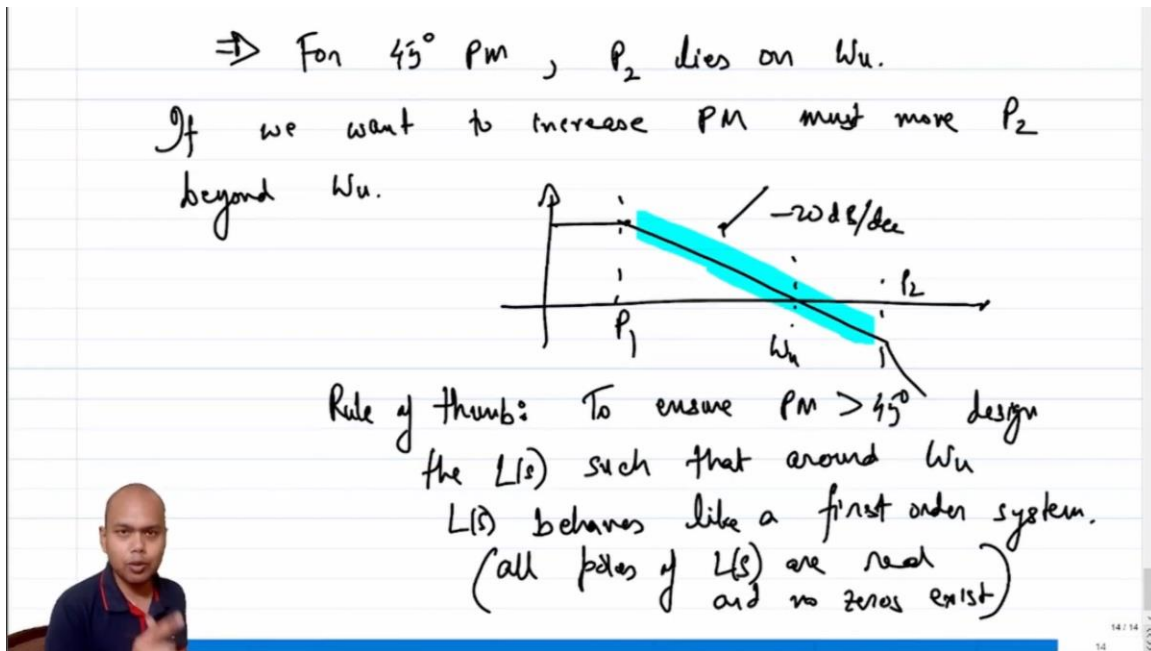 ⇒ For 45° PM, P2 lies on Wu.
If we want to increase PM must move P2
beyond Wu.
-20 dB/dec
P2
P1
Wu
Rule of thumb: To ensure PM > 45° design
the L(s) such that around Wu
L(s) behaves like a first order system.
(all poles of L(s) are real
and no zeros exist)
14 / 14
14